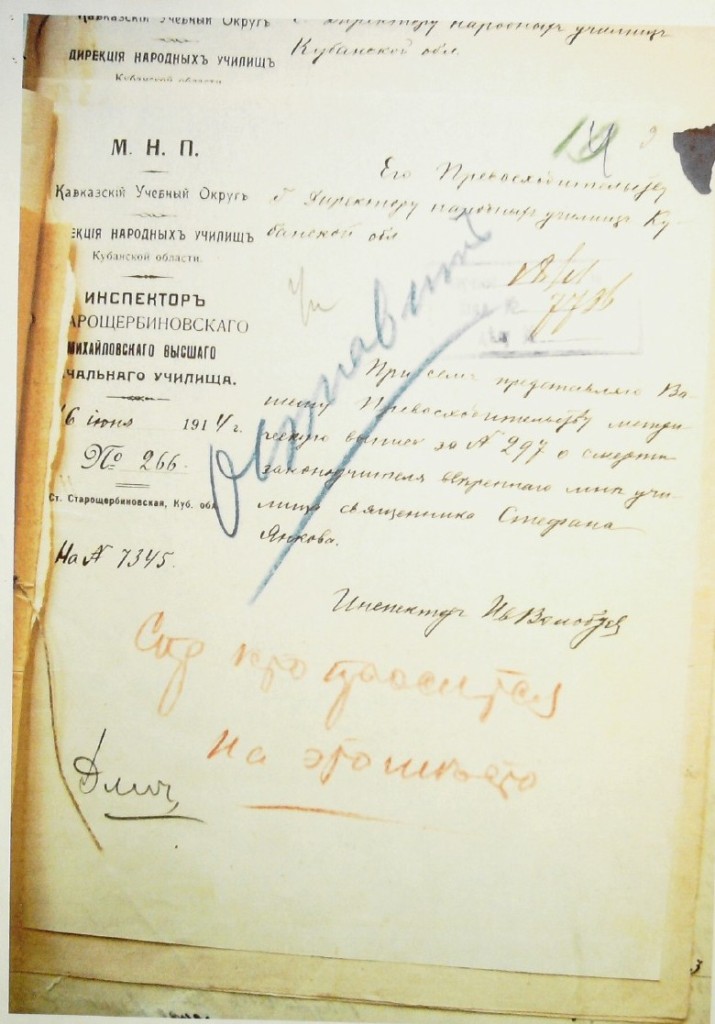 Кавказскій Учебный Округъ
ДИРЕКЦІЯ НАРОДНЫХЪ УЧИЛИЩЪ
Кубанской области
Директору народныхъ училищъ
Кубанской обл.
М. Н. П.
Кавказскій Учебный Округъ
ЕКЦІЯ НАРОДНЫХЪ УЧИЛИЩЪ
Кубанской области.
ИНСПЕКТОРЪ
АРОЩЕРБИНОВСКАГО
МИХАЙЛОВСКАГО ВЫСШАГО
ЧАЛЬНАГО УЧИЛИЩА.
16 іюня 1914 г.
№ 266.
Ст. Старощербиновская, Куб. обл.
На № 7345.
Его Превосходительству
Г. Директору народныхъ училищъ Ку-
банской обл
7796
При семъ представляю Ва-
шему Превосходительству метри-
ческую выпись за № 297 о смерти
законоучителя ввѣреннаго мнѣ учи-
лища священника Стефана
Янкова.
Инспекторъ Ив
кто просится
на это мѣсто